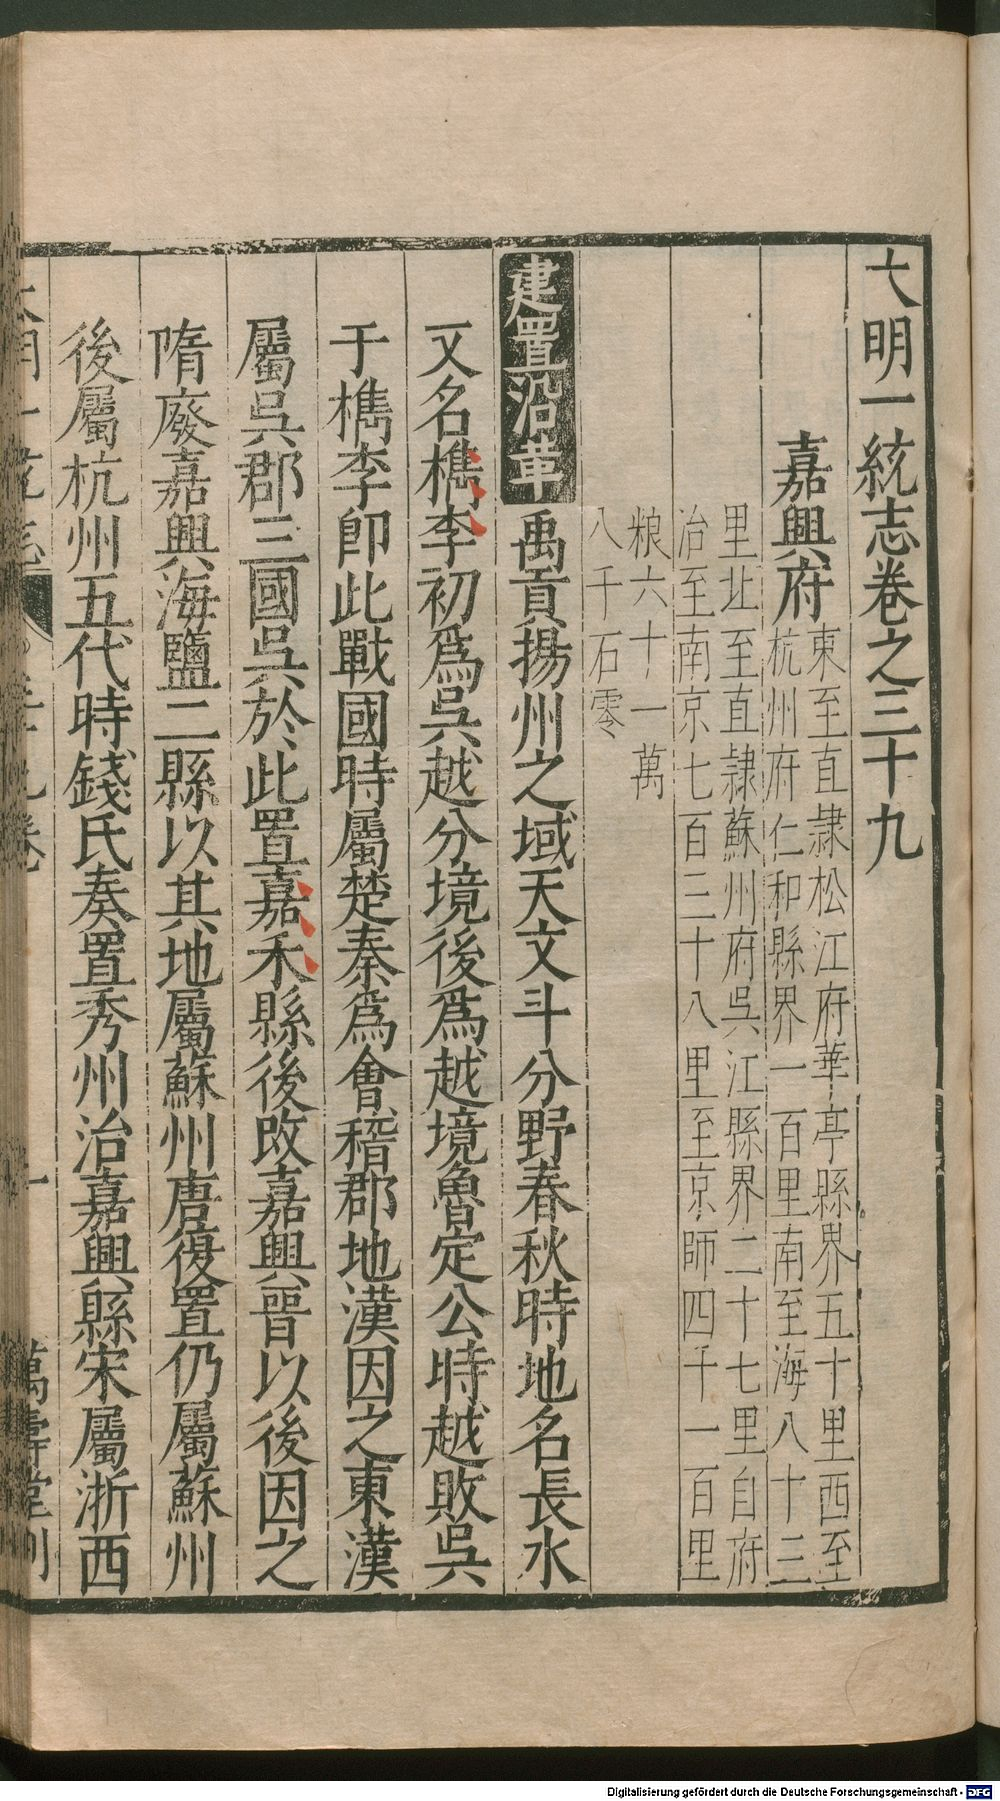 大明一統志卷之三十九
嘉興府
東至直隷松江府華亭縣界五十里西至
杭州府仁和縣界一百里南至海八十三
里北至直隷蘇州府吳江縣界二十七里自府
治至南京七百三十八里至京師四千一百里
粮六十一萬
八千石零
建置沿革
禹貢揚州之域天文斗分野春秋時地名長水
又名檇李初爲吳越分境後爲越境魯定公時越敗吳
于檇李即此戰國時屬楚秦爲會稽郡地漢因之東漢
屬吳郡三國吳於此置嘉禾縣後改嘉興晉以後因之
隋廢嘉興海鹽二縣以其地屬蘇州唐復置仍屬蘇州
後屬杭州五代時錢氏奏置秀州治嘉興縣宋屬浙西
大明一統志
三十九卷
一
萬壽堂刊
Digitalisierung gefördert durch die Deutsche Forschungsgemeinschaft - DFG